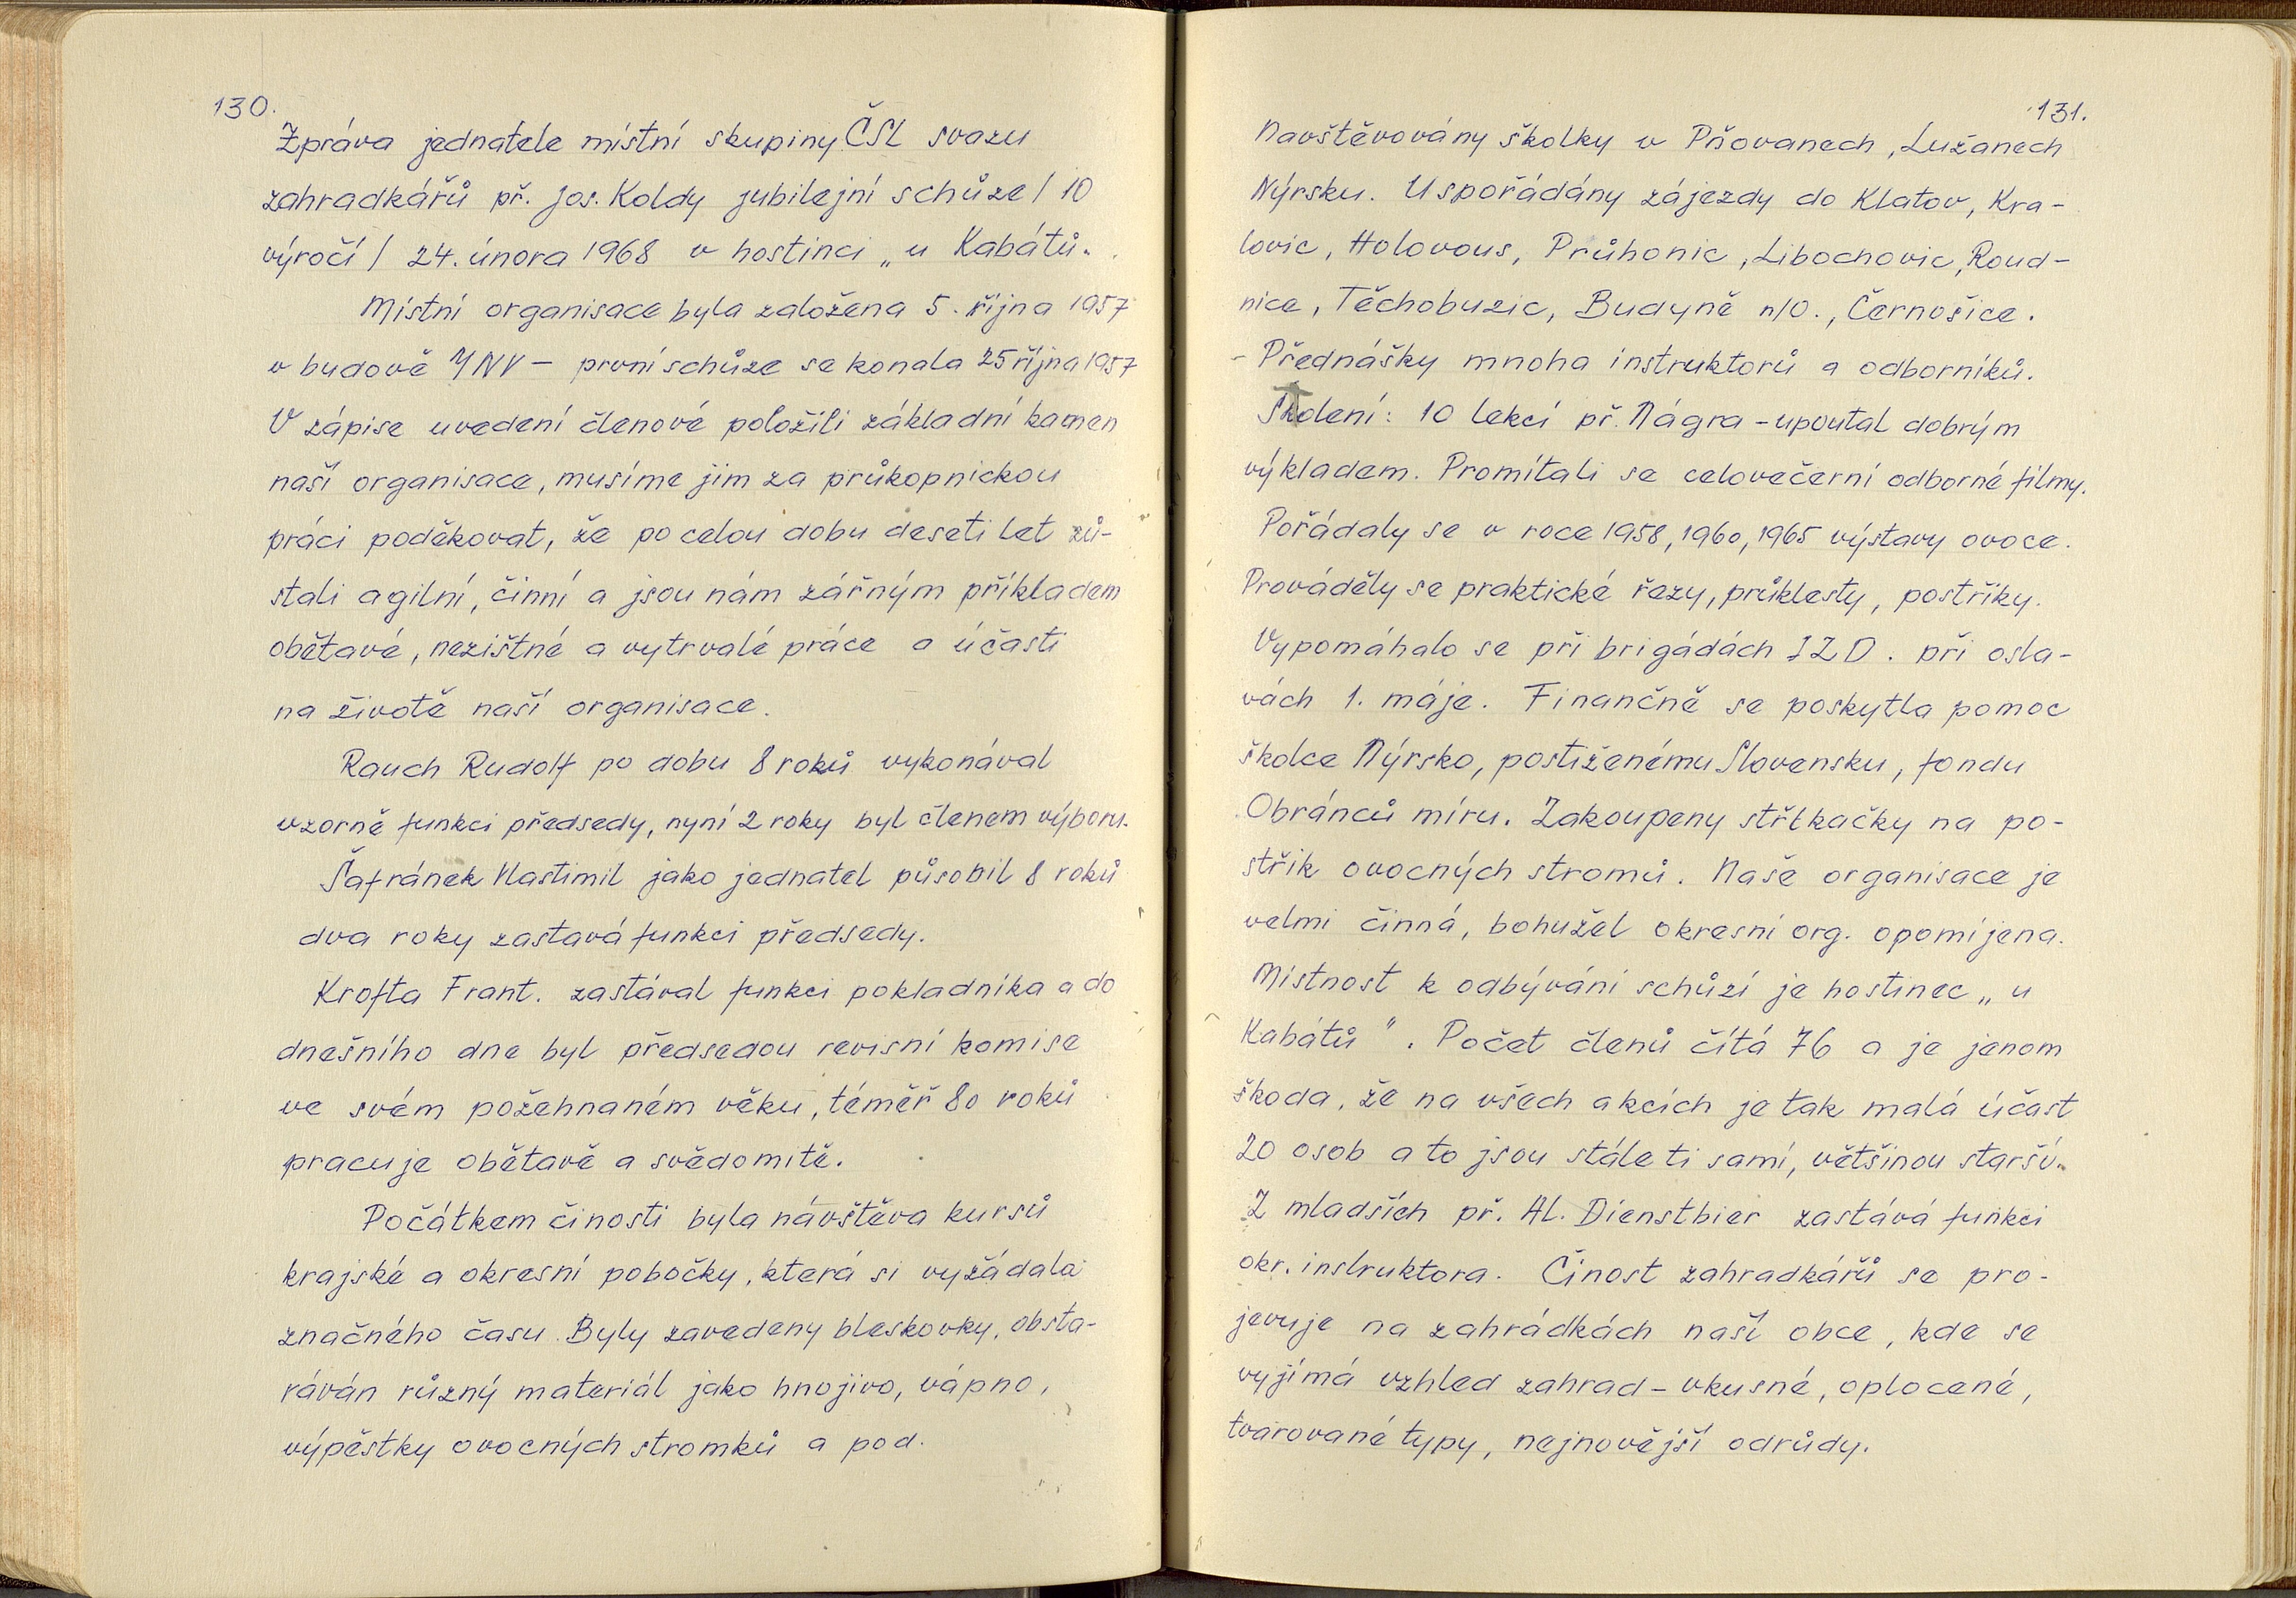 130.
Zpráva jednatele místní skupiny ČSL svazu
zahradkářů př. Jos. Koldy jubilejní schůze / 10
výročí / 24. února 1968 v hostinci „u Kabátů".
Místní organisace byla založena 5. října 1957
v budově MNV – první schůze se konala 25 října 1957
V zápise uvedení členové položili základní kamen
naší organisace, musíme jim za průkopnickou
práci poděkovat, že po celou dobu deseti let zů-
stali agilní, činní a jsou nám zářným příkladem
obětavé, nezištné a vytrvalé práce a účasti
na životě naší organisace.
Rauch Rudolf po dobu 8 roků vykonával
vzorně funkci předsedy, nyní 2 roky byl členem výboru.
Šafránek Vlastimil jako jednatel působil 8 roků
dva roky zastavá funkci předsedy.
Krofta Frant. zastával funkci pokladníka a do
dnešního dne byl předsedou revisní komise
ve svém požehnaném věku, téměř 80 roků
pracuje obětavě a svědomitě.
Počátkem činosti byla návštěva kursů
krajské a okresní pobočky, která si vyžádala
značného času. Byly zavedeny bleskovky, obsta-
ráván různý materiál jako hnojivo, vápno,
výpěstky ovocných stromků a pod.
131.
Navštěvovány školky v Pňovanech, Lužanech
Nýrsku. Uspořádány zájezdy do Klatov, Kra-
lovic, Holovous, Průhonic, Libochovic, Roud-
nice, Těchobuzic, Budyně n/O., Černošice.
- Přednášky mnoha instruktorů a odborníků.
Školení: 10 lekcí př. Nágra – upoutal dobrým
výkladem. Promítali se celovečerní odborné filmy.
Pořádaly se v roce 1958, 1960, 1965 výstavy ovoce.
Prováděly se praktické řezy, průklesty, postřiky.
Vypomáhalo se při brigádách JZD. při osla-
vách 1. máje. Finančně se poskytla pomoc
školce Nýrsko, postiženému Slovensku, fondu
Obránců míru. Zakoupeny střikačky na po-
střik ovocných stromů. Naše organisace je
velmi činná, bohužel okresní org. opomíjena.
Místnost k odbývání schůzí je hostinec „u
Kabátů". Počet členů čítá 76 a je jenom
škoda, že na všech akcích je tak malá účast
20 osob a to jsou stále ti samí, většinou starší.
Z mladších př. Al. Dienstbier zastává funkci
okr. instruktora. Činost zahradkářů se pro-
jevuje na zahrádkách naší obce, kde se
vyjímá vzhled zahrad – vkusné, oplocené,
tvarované typy, nejnovější odrůdy.